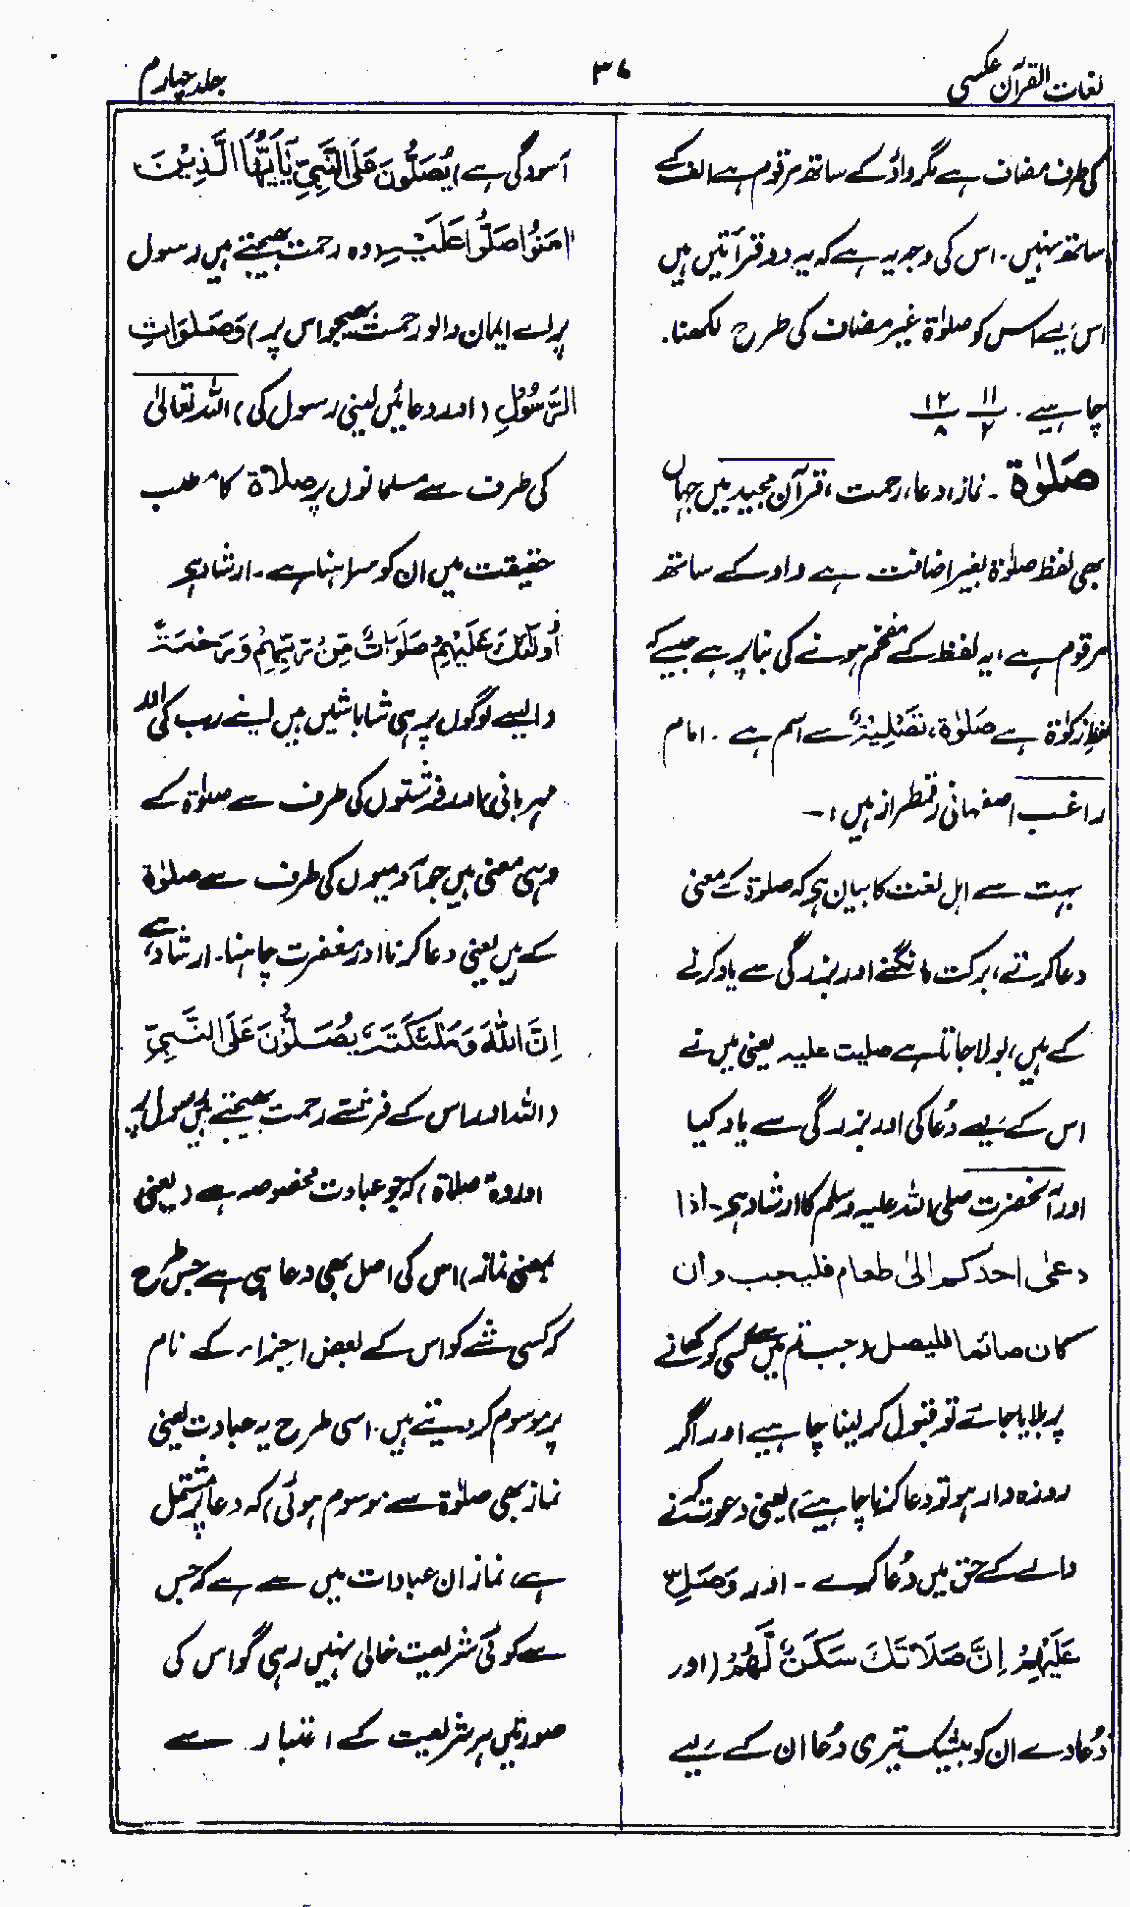 لغات القرآن عکسی
۳۷
جلد چہارم
کی طرف مضاف ہے مگر واؤ کے ساتھ مرقوم ہے الف کے
ساتھ نہیں۔ اس کی وجہ یہ ہے کہ یہ دو قرآتیں ہیں
اس لیے اس کو صلوٰۃ غیر مضاف کی طرح لکھنا۔
چاہیے۔ ۱۱/۲ ۱۲/۸
صَلوٰۃ۔ نماز، دعا، رحمت، قرآن مجید میں جہاں
بھی لفظ صلوٰۃ بغیر اضافت ہے واو کے ساتھ
مرقوم ہے، یہ لفظ کے مفخم ہونے کی بنا پر ہے جیسے کہ
لفظ زکوٰۃ ہے صَلوٰۃ، تَصْلِیَۃٌ سے اسم ہے۔ امام
راغب اصفہانی رقمطراز ہیں:۔
بہت سے اہل لغت کا بیان ہی کہ صلوٰۃ کے معنی
دعا کرنے، برکت مانگنے اور بزرگی سے یاد کرنے
کے ہیں، بولا جاتا ہے صلیت علیہ یعنی میں نے
اس کے لیے دُعا کی اور بزرگی سے یاد کیا
اور آنحضرت صلی اللہ علیہ وسلم کا ارشاد ہی۔ اذا
دعیٰ احدکم الیٰ طعام فلیجب وان
کان صائما فلیصل (جب تم میں سے کسی کو کھانے
پر بلایا جائے تو قبول کر لینا چاہیے اور اگر
روزہ دار ہو تو دعا کرنا چاہیے) یعنی دعوت کرنے
والے کے حق میں دُعا کرے۔ اور وَصَلِّ
عَلَیْہِمْ اِنَّ صَلَاتَکَ سَکَنٌ لَّہُمْ (اور
دُعا دے ان کو بیشک تیری دُعا ان کے لیے
آسودگی ہے) یُصَلُّونَ عَلَی النَّبِیِّ یٰٓاَیُّہَا الَّذِیْنَ
اٰمَنُوْا صَلُّوْا عَلَیْہِ (وہ رحمت بھیجتے ہیں رسول
پر اے ایمان والو رحمت بھیجو اس پر) وَصَلَوَاتِ
الرَّسُوْلِ (اور دعائیں لینی رسول کی) اللہ تعالیٰ
کی طرف سے مسلمانوں پر صلاۃ کا مطلب
حقیقت میں ان کو سراہنا ہے۔ ارشاد ہی
اُولٰٓئِکَ عَلَیْہِمْ صَلَوَاتٌ مِّنْ رَّبِّہِمْ وَرَحْمَۃٌ
(ایسے لوگوں پر ہی شاباشیں ہیں اپنے رب کی اور
مہربانی) اور فرشتوں کی طرف سے صلوٰۃ کے
وہی معنی ہیں جو آدمیوں کی طرف سے صلوٰۃ
کے ہیں یعنی دعا کرنا اور مغفرت چاہنا۔ ارشاد ہے،
اِنَّ اللّٰہَ وَمَلٰٓئِکَتَہٗ یُصَلُّوْنَ عَلَی النَّبِیِّ
(اللہ اور اس کے فرشتے رحمت بھیجتے ہیں رسول پر)
اور وہ صلاۃ کہ جو عبادت مخصوصہ ہے (یعنی
بمعنی نماز) اس کی اصل بھی دعا ہی ہے جس طرح
کہ کسی شئے کو اس کے بعض اجزاء کے نام
پر موسوم کر دیتے ہیں۔ اسی طرح یہ عبادت یعنی
نماز بھی صلوٰۃ سے موسوم ہوئی) کہ دعا پر مشتمل
ہے، نماز ان عبادات میں سے ہے کہ جس
سے کوئی شریعت خالی نہیں رہی گو اس کی
صورتیں ہر شریعت کے اعتبار سے